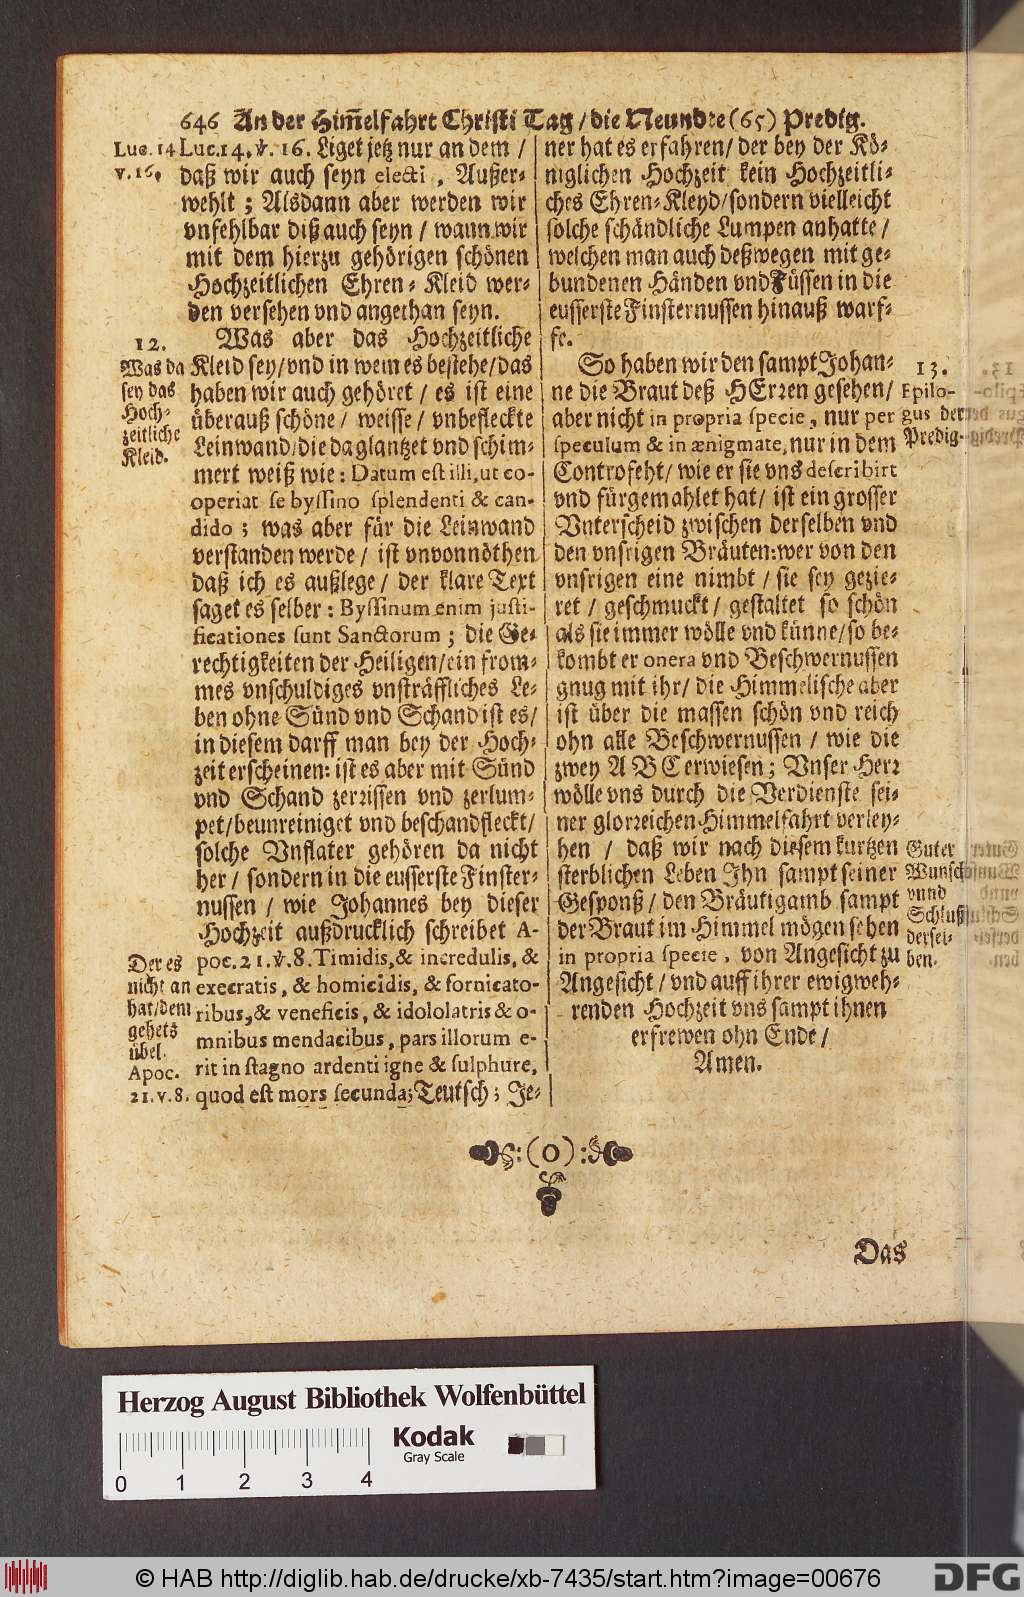 646 An der Him̃elfahrt Christi Tag / die Neundte (65) Predig.
Luc. 14
v. 16.
Luc. 14. v. 16. Liget jetz nur an dem /
daß wir auch seyn electi, Außer-
wehlt ; Alsdann aber werden wir
vnfehlbar diß auch seyn / wann wir
mit dem hierzu gehörigen schönen
Hochzeitlichen Ehren-Kleid wer-
den versehen vnd angethan seyn.
12.
Was da
sey das
Hoch-
zeitliche
Kleid.
Was aber das Hochzeitliche
Kleid sey/ vnd in wem es bestehe/ das
haben wir auch gehöret / es ist eine
überauß schöne / weisse / vnbefleckte
Leinwand/ die da glantzet vnd schim-
mert weiß wie : Datum est illi, ut co-
operiat se byssino splendenti & can-
dido ; was aber für die Leinwand
verstanden werde / ist vnvonnöthen
daß ich es außlege / der klare Text
saget es selber : Byssinum enim justi-
ficationes sunt Sanctorum ; die Ge-
rechtigkeiten der Heiligen/ ein from-
mes vnschuldiges vnsträffliches Le-
ben ohne Sünd vnd Schand ist es/
in diesem darff man bey der Hoch-
zeit erscheinen: ist es aber mit Sünd
vnd Schand zerrissen vnd zerlum-
pet/ beunreiniget vnd beschandfleckt/
solche Vnflater gehören da nicht
her / sondern in die eusserste Finster-
nussen / wie Johannes bey dieser
Hochzeit außdrucklich schreibet A-
poc. 21. v. 8. Timidis, & incredulis, &
execratis, & homicidis, & fornicato-
ribus, & veneficis, & idololatris & o-
mnibus mendacibus, pars illorum e-
rit in stagno ardenti igne & sulphure,
quod est mors secunda; Teutsch; Je-
Der es
nicht an
hat/ dem
gehets
übel.
Apoc.
21. v. 8.
ner hat es erfahren/ der bey der Kö-
niglichen Hochzeit kein Hochzeitli-
ches Ehren-Kleyd/ sondern vielleicht
solche schändliche Lumpen anhatte /
welchen man auch deßwegen mit ge-
bundenen Händen vnd Füssen in die
eusserste Finsternussen hinauß warf-
fe.
So haben wir den sampt Johan-
ne die Braut deß HErren gesehen/
aber nicht in propria specie, nur per
speculum & in ænigmate, nur in dem
Controfeht/ wie er sie vns describirt
vnd fürgemahlet hat/ ist ein grosser
Vnterscheid zwischen derselben vnd
den vnsrigen Bräuten: wer von den
vnsrigen eine nimbt / sie sey gezie-
ret / geschmuckt / gestaltet so schön
als sie immer wölle vnd künne/ so be-
kombt er onera vnd Beschwernussen
gnug mit ihr/ die Himmelische aber
ist über die massen schön vnd reich
ohn alle Beschwernussen / wie die
zwey A B C erwiesen; Vnser Herr
wölle vns durch die Verdienste sei-
ner glorreichen Himmelfahrt verley-
hen / daß wir nach diesem kurtzen
sterblichen Leben Ihn sampt seiner
Gesponß / den Bräutigamb sampt
der Braut im Himmel mögen sehen
in propria specie, von Angesicht zu
Angesicht / vnd auff ihrer ewigweh-
renden Hochzeit vns sampt ihnen
erfrewen ohn Ende /
Amen.
13.
Epilo-
gus der
Predig.
Guter
Wunsch
vnnd
Schluß
dersel-
ben.
:(0):
Das
Herzog August Bibliothek Wolfenbüttel
Kodak
Gray Scale
0 1 2 3 4
© HAB http://diglib.hab.de/drucke/xb-7435/start.htm?image=00676
DFG